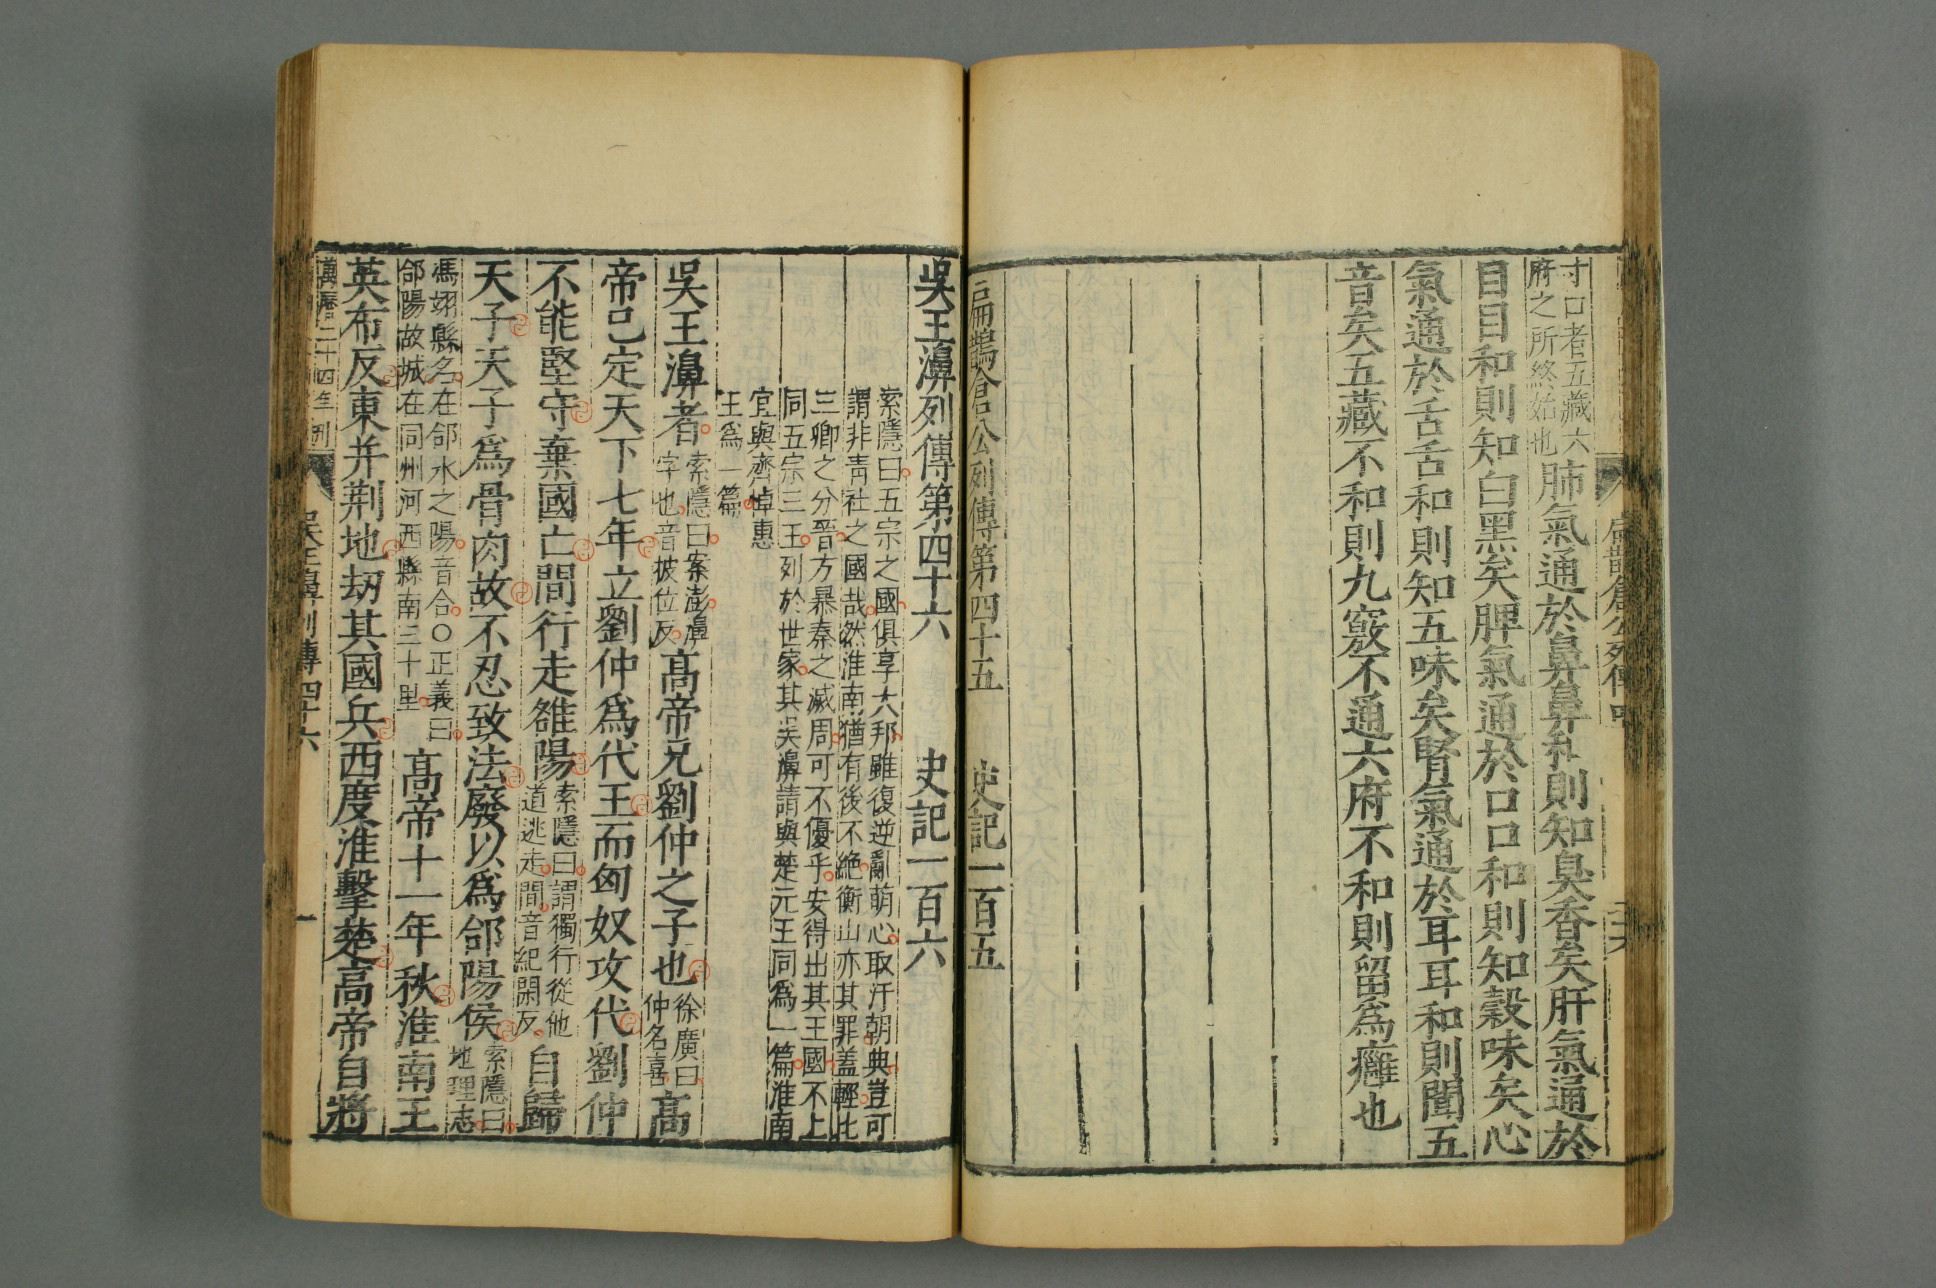 寸口者五藏六
府之所終始也
肺氣通於鼻鼻和則知臭香矣肝氣通於
目目和則知白黑矣脾氣通於口口和則知穀味矣心
氣通於舌舌和則知五味矣腎氣通於耳耳和則聞五
音矣五藏不和則九竅不通六府不和則留爲癰也
扁鵲倉公列傳第四十五 史記一百五
吳王濞列傳第四十六 史記一百六
索隱曰五宗之國俱享大邦雖復逆亂萌心取汙朝典豈可
謂非青社之國哉然淮南猶有後不絶衡山亦其罪蓋輕比
三卿之分晉方暴秦之滅周可不優乎安得出其王國不上
同五宗三王列於世家其吳濞請與楚元王同爲一篇淮南
宜與齊悼惠
王爲一篇
吳王濞者
索隱曰案澎濞
字也音披位反
高帝兄劉仲之子也
徐廣曰
仲名喜
高
帝已定天下七年立劉仲爲代王而匈奴攻代劉仲
不能堅守棄國亡間行走雒陽
索隱曰謂獨行從他
道逃走間音紀閑反
自歸
天子天子爲骨肉故不忍致法廢以爲郃陽侯
索隱曰
地理志
馮翊縣名在郃水之陽音合〇正義曰
郃陽故城在同州河西縣南三十里
高帝十一年秋淮南王
英布反東并荆地劫其國兵西度淮擊楚高帝自將
萬曆二十四年刊
吳王濞列傳四十六
一